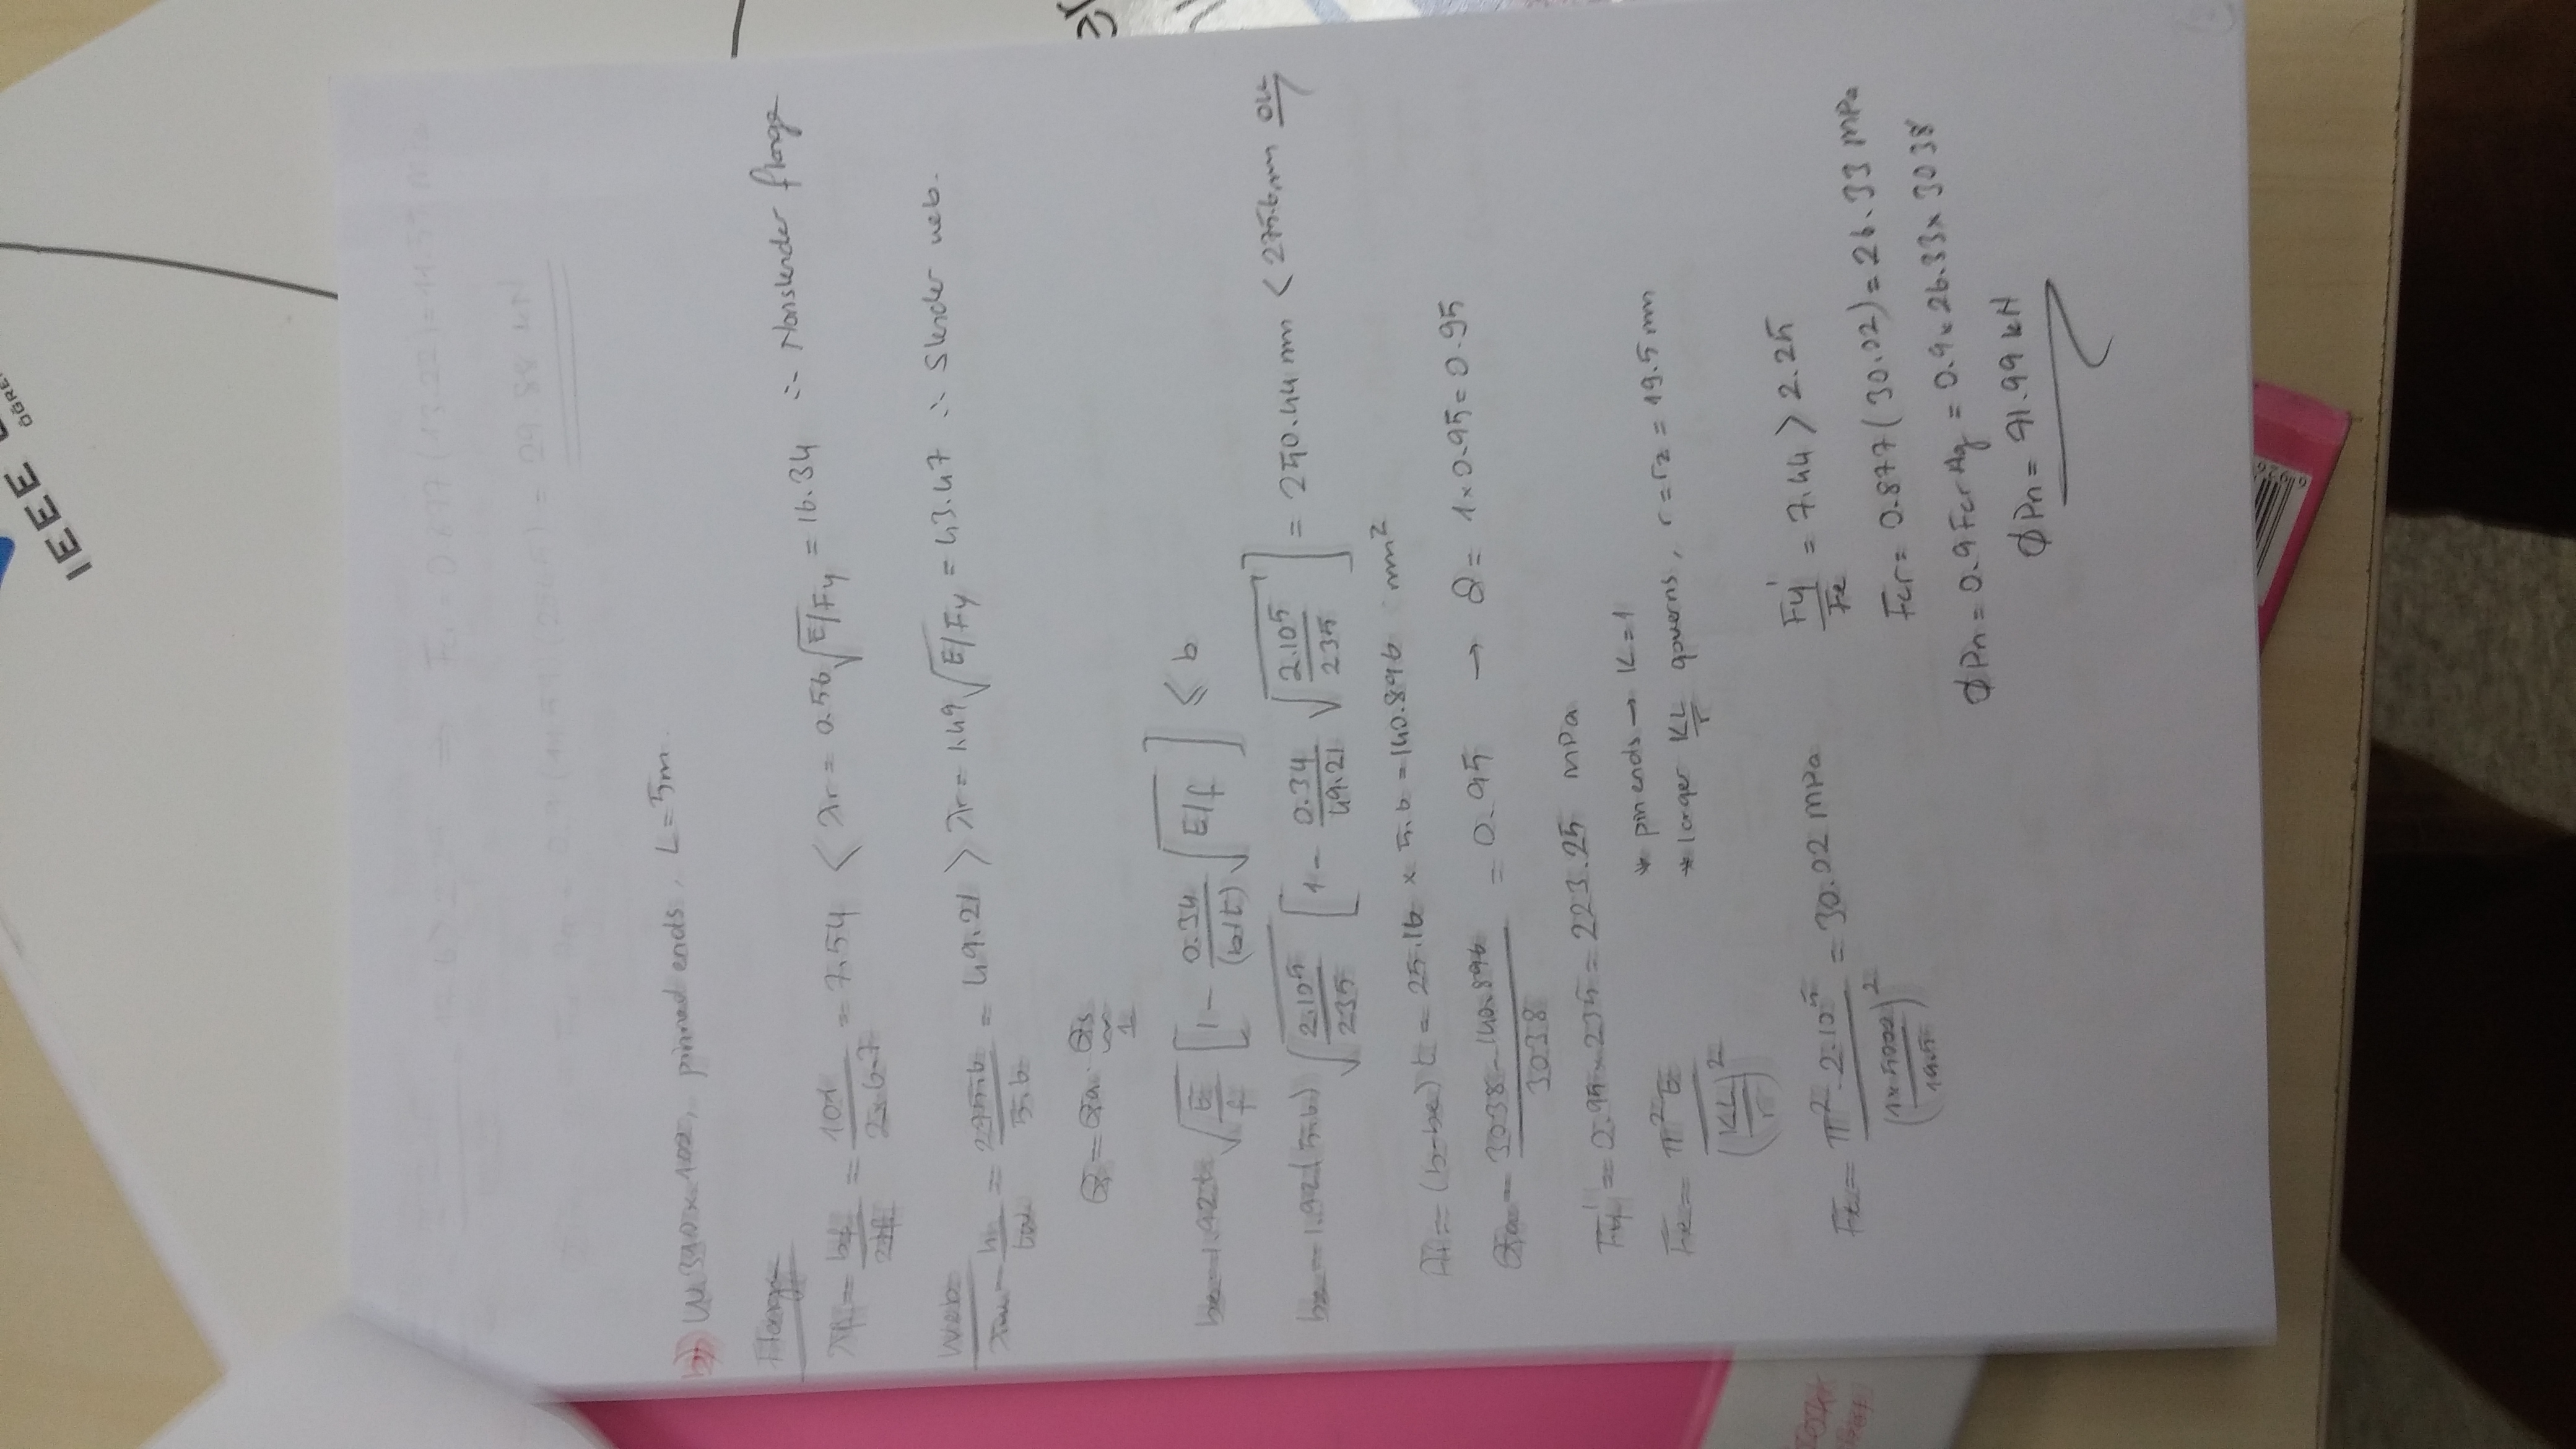 IEEE
ÖĞRE
Fcr = 0.877 (13.22) = 11.59 MPa
= 29.88 kN
b) W 310x102, pinned ends, L = 5m.
Flange
λf = bf/2tf = 101/(2x6.7) = 7.54 < λr = 0.56 √(E/Fy) = 16.34 ∴ Nonslender flange
Web
λw = h/tw = 275.6/5.6 = 49.21 > λr = 1.49 √(E/Fy) = 43.47 ∴ Slender web.
Q = Qa . Qs
1
be = 1.92t √(E/f) [1 - 0.34/(b/t) √(E/f)] ≤ b
be = 1.92(5.6) √(2.10⁵/235) [1 - 0.34/49.21 √(2.10⁵/235)] = 250.44 mm < 275.6 mm OK
= (b-be) t = 25.16 x 5.6 = 140.896 mm²
Qa = (3038 - 140.896)/3038 = 0.95 → Q = 1x0.95 = 0.95
Fy' = 0.95 x 235 = 223.25 MPa
* pin ends → K = 1
Fe = π²E/(KL/r)²
* larger KL/r governs, r = rz = 19.5 mm
Fe = π².2.10⁵/(1x5000/19.5)² = 30.02 MPa
Fy'/Fe = 7.44 > 2.25
Fcr = 0.877 (30.02) = 26.33 MPa
ØPn = 0.9 Fcr Ag = 0.9 x 26.33 x 3038
ØPn = 71.99 kN